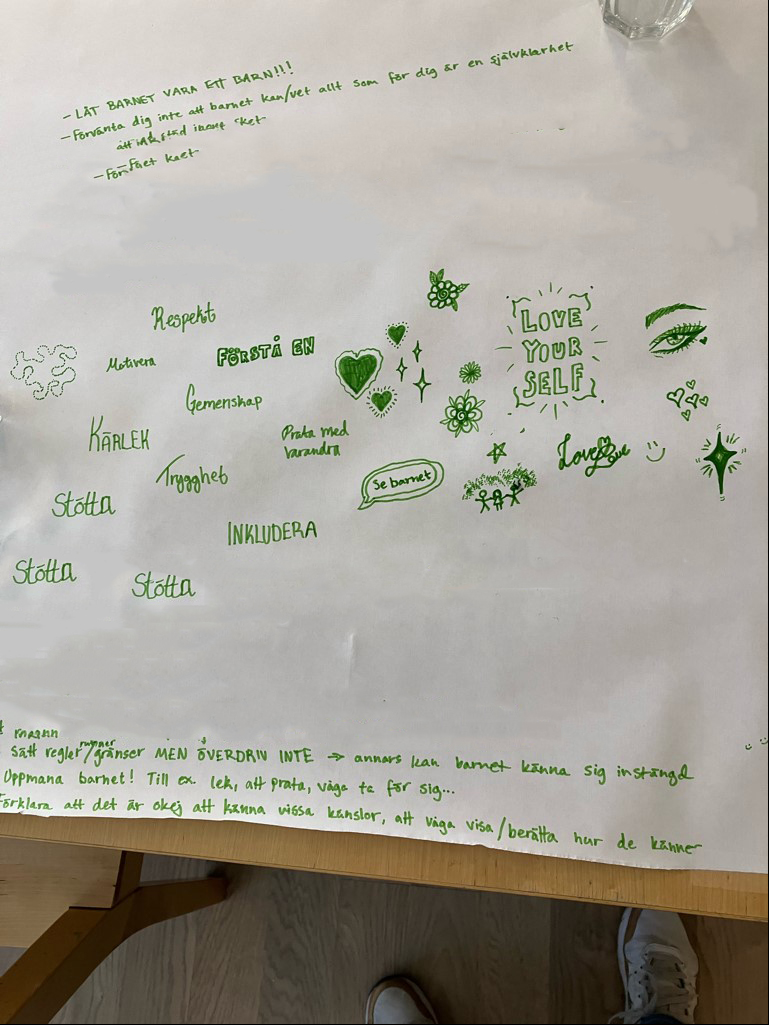 - LÅT BARNET VARA ETT BARN!!!
- Förvänta dig inte att barnet kan/vet allt som för dig är en självklarhet
Respekt
Motivera
FÖRSTÅ EN
Gemenskap
KÄRLEK
Prata med
varandra
Trygghet
Stötta
INKLUDERA
Stötta
Stötta
LOVE
YOUR
SELF
Se barnet
Love
Love
Sätt regler/gränser MEN ÖVERDRIV INTE → annars kan barnet känna sig instängd
Uppmana barnet! Till ex. lek, att prata, våga ta för sig...
Förklara att det är okej att känna vissa känslor, att våga visa/berätta hur de känner